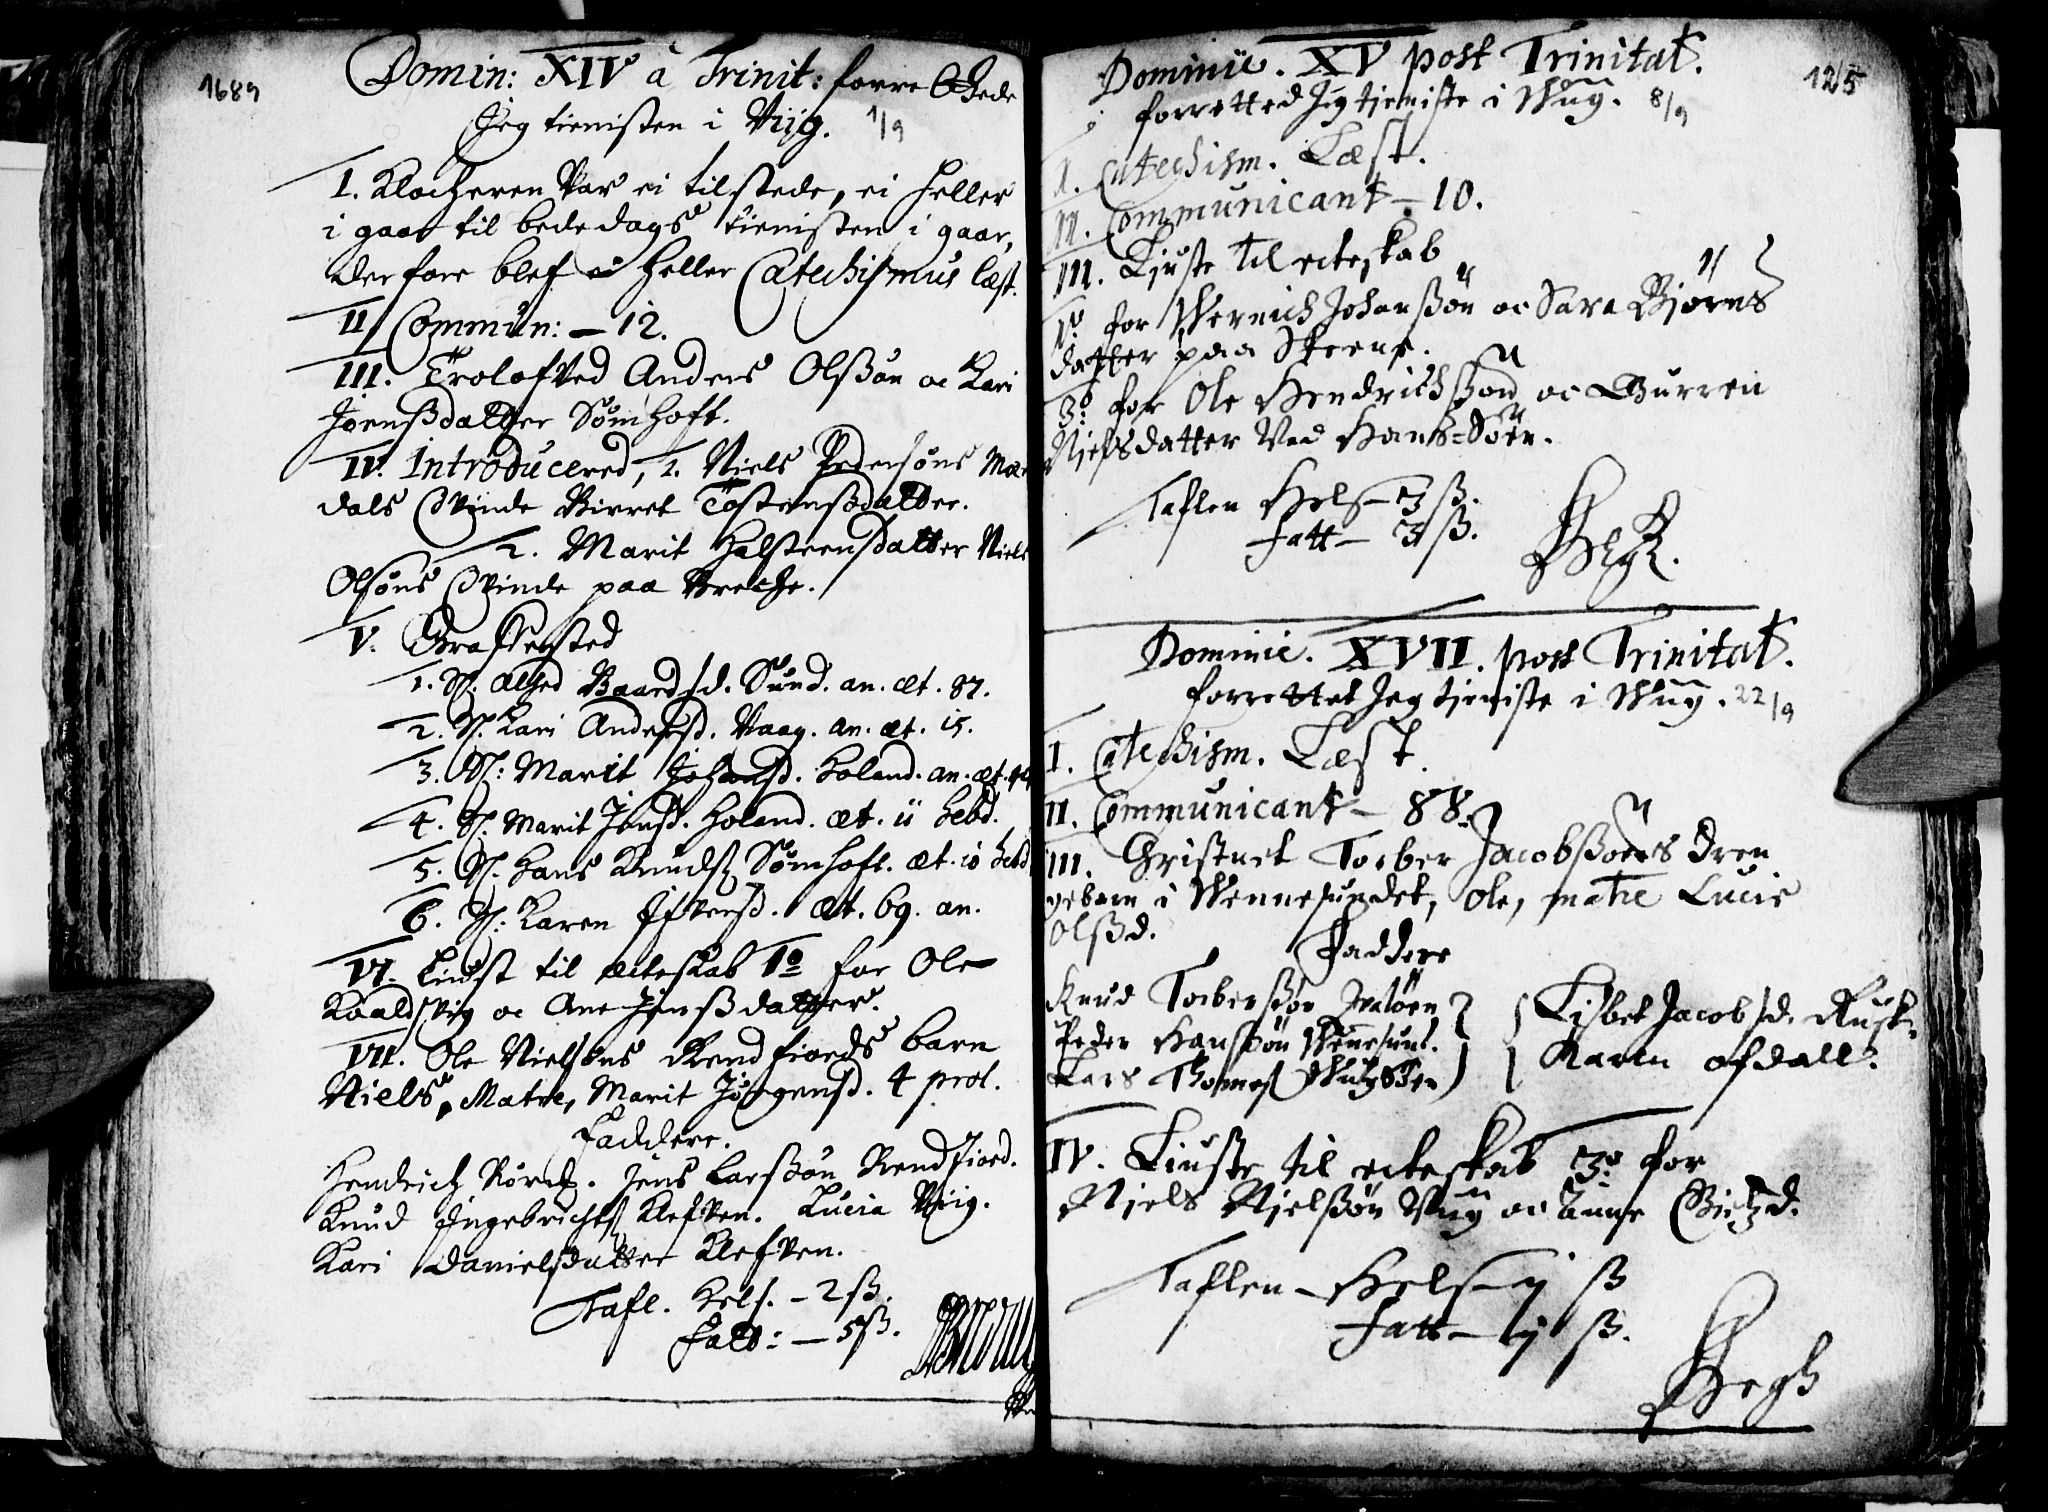 1689
Domin: XIV à Trinit: forrettede
Jeg tienisten i Viig. 1/9
I. Klocheren Var ei tilstede, ei heller
i gaar til bededags tienisten i gaar,
derfore blef ei heller Catechismus læst.
II Commun: – 12.
III. Trolofved Anders Olssøn oc Kari
Joenssdatter Sømhoft.
IV. Introducered, 1. Niels Pedersøns
dals Qvinde Birret Tostenssdatter.
2. Marit Halsteensdatter Niels
Olsøns Qvinde paa Breche.
V. Graffested
1. Sl. Baardsd. Sund. an. æt. 87.
2. Sl. Kari Andersd. Vaag. an. æt. 15.
3. Sl: Marit Johansd. Holand. an. æt.
4. Sl. Marit Jonsd. Holand. æt. 11 hebd.
5. Sl. Hans Knuds. Sømhoft. æt. 10 hebd
6. Sl: Karen Ifversd. æt. 69. an.
VI. Liust til ecteskab 1º for Ole
Kvaldsvig oc Ane Jensdatter.
VII. Ole Nielsøns Rendfiords barn
Niels, Matre, Marit Jørgensd. 4 prol.
Faddere.
Hendrich Rørøe. Jens Larssøn Rendfiord.
Knud Ingebrichts. Klefven. Lucia Viig.
Kari Danielsdatter Klefven.
Tafl. Hels. – 2 ß.
Fatt: – 5 ß.
125
Dominic. XV post Trinitat.
forretted Jeg tieniste i Wiig. 8/9
I. Catechism. Læst.
II. Communicant – 10.
III. Liuste til ecteskab
1º for Wernich Johanssøn oc Sara Bjørns
datter paa Steene.
3º for Ole Hendrichssøn oc Gurren
Njelsdatter Ved Hans-Søen.
Taflen Hels – 3 ß.
Fatt – 3 ß.
Dominic. XVII. post Trinitat.
forrettet Jeg tieniste i Wiig. 22/9
I. Catechism. Læst.
II. Communicant – 88.
III. Christnet Torber Jacobssøns dren
gebarn i Wennesundet, Ole, matre Lucie
Olssd.
Faddere
Knud Torberssøn
Peder Hanssøn Wennesunt.
Lars Thomes.
Lisbet Jacobsd. Rusk.
Karen ofdall.
IV. Liuste til ecteskab 3º for
Njels Njelssøn Viig oc Anne
Taflen – Hels – ij ß
Fatt – ij ß.
Hegh